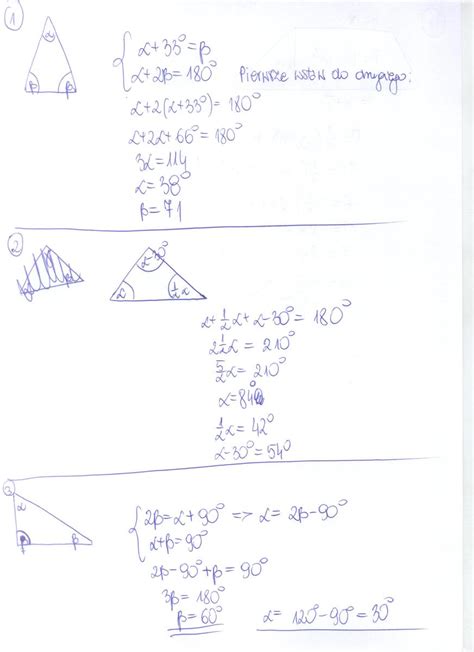 1
α
β β
α+33°=β
α+2β=180° Pierwsze wstaw do drugiego:
α+2(α+33°)=180°
α+2α+66°=180°
3α=114
α=38°
β=71
2
α-30°
α ½α
α+½α+α-30°=180°
2½α=210°
5/2α=210°
α=84°
½α=42°
α-30°=54°
3
α
β
2β=α+90° => α=2β-90°
α+β=90°
2β-90°+β=90°
3β=180°
β=60° α=120°-90°=30°